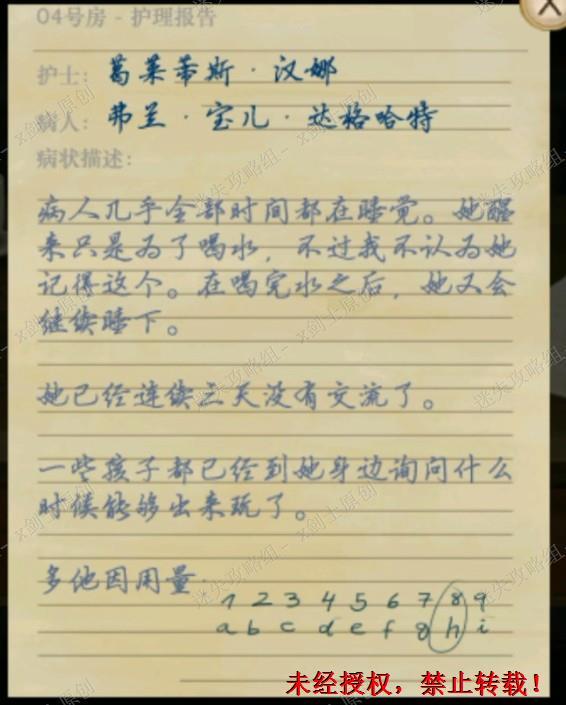 04号房 - 护理报告
护士: 葛莱蒂斯·汉娜
病人: 弗兰·宝儿·达格哈特
病状描述:
病人几乎全部时间都在睡觉。她醒
来只是为了喝水，不过我不认为她
记得这个。在喝完水之后，她又会
继续睡下。
她已经连续三天没有交流了。
一些孩子都已经到她身边询问什么
时候能够出来玩了。
多他因用量:
1 2 3 4 5 6 7 8 9
a b c d e f g h i
未经授权，禁止转载！
迷失攻略组-x剑士原创